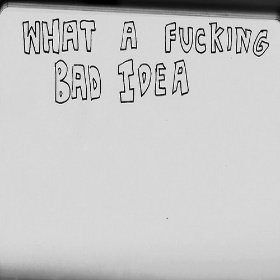 WHAT A FUCKING
BAD IDEA